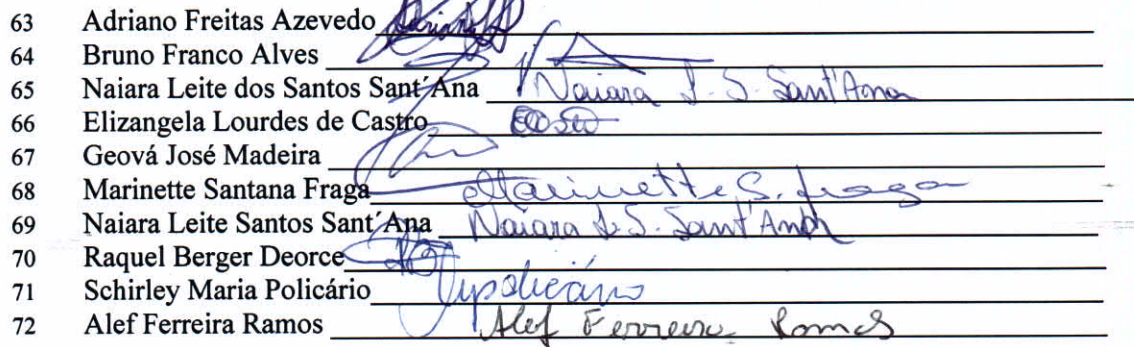 63 Adriano Freitas Azevedo
64 Bruno Franco Alves
65 Naiara Leite dos Santos Sant´Ana Naiara L. S. Sant'Ana
66 Elizangela Lourdes de Castro
67 Geová José Madeira
68 Marinette Santana Fraga Marinette S. Fraga
69 Naiara Leite Santos Sant´Ana Naiara L. S. Sant'Ana
70 Raquel Berger Deorce
71 Schirley Maria Policário
72 Alef Ferreira Ramos Alef Ferreira Ramos